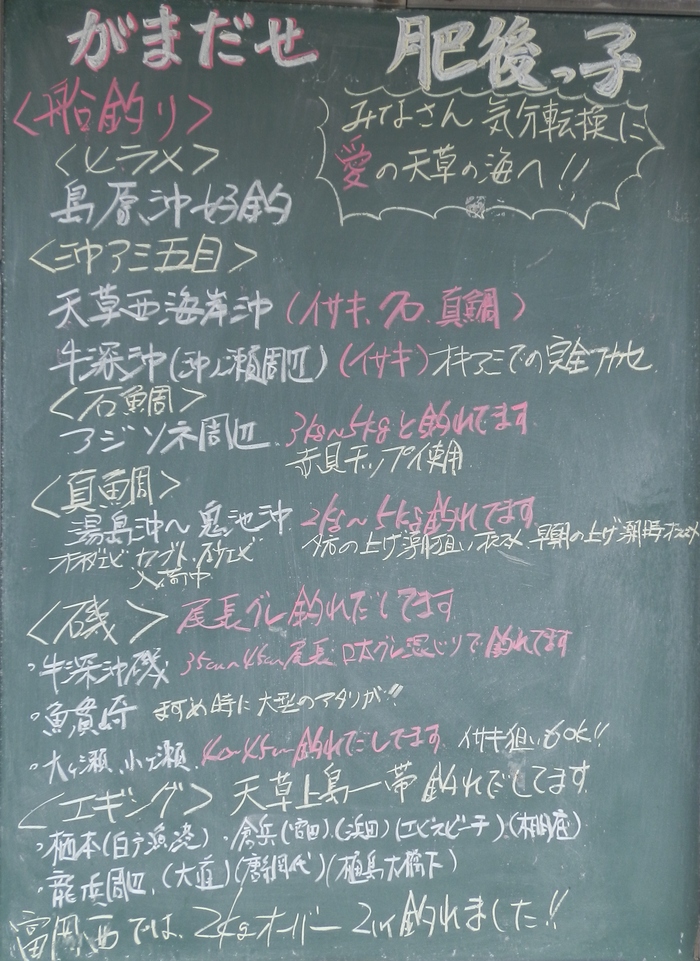 がまだせ 肥後っ子
<船釣り>
みなさん 気分転換に
愛の天草の海へ!!
<ヒラメ>
島原沖 好釣
<沖アミ五目>
天草西海岸沖 (イサキ、クロ、真鯛)
牛深沖(沖ノ瀬周辺) (イサキ) オキアミでの完全フカセ
<石鯛>
アジソネ周辺 3kg~5kgと釣れてます
赤貝チップ使用
<真鯛>
湯島沖~鬼池沖 2kg~5kg釣れてます
夕方の上げ潮狙いオススメ 早朝の上げ潮時オススメ
入荷中
<磯> 尾長グレ釣れだしてます
・牛深沖磯 35cm~45cm尾長 口太グレ混じりで釣れてます
・魚貫崎 まずめ時に大型のアタリが!!
・大ヶ瀬、小ヶ瀬 40~45cm釣れだしてます イサキ狙いもOK!!
<エギング> 天草上島一帯 釣れだしてます
・栖本(白戸漁港)・倉兵(宮田)(浜田)(エビスビーチ)
・龍ヶ浜周辺、(大道)(唐網代)(樋島大橋下)
富岡西では、2kgオーバー 2ハイ釣れました!!